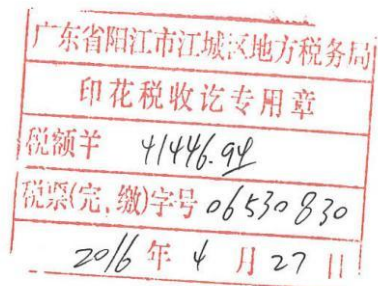 广东省阳江市江城区地方税务局
印花税收讫专用章
税额￥ 41446.94
税票(完、缴)字号 06530830
2016 年 4 月 27 日